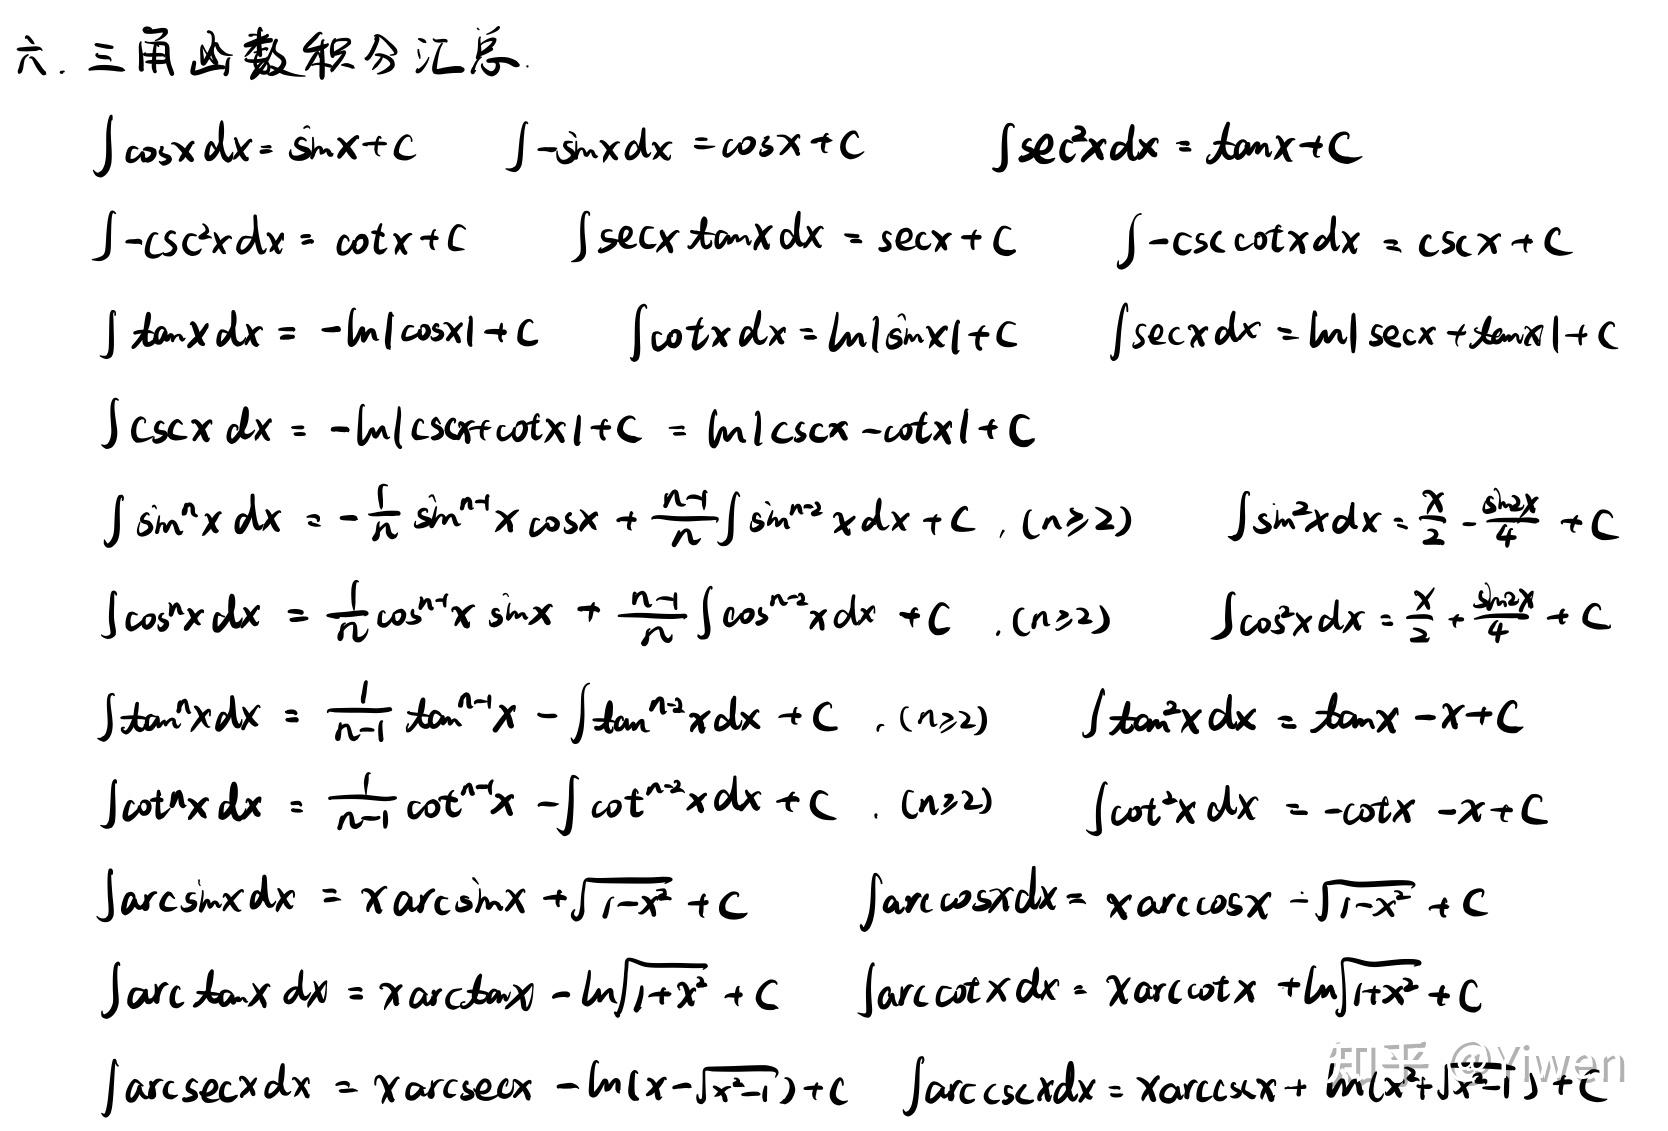 六. 三角函数积分汇总.
∫cosxdx = sinx+C ∫-sinxdx = cosx+C ∫sec²xdx = tanx+C
∫-csc²xdx = cotx+C ∫secxtanxdx = secx+C ∫-csccotxdx = cscx+C
∫tanxdx = -ln|cosx|+C ∫cotxdx = ln|sinx|+C ∫secxdx = ln|secx+tanx|+C
∫cscxdx = -ln|cscx+cotx|+C = ln|cscx-cotx|+C
∫sinⁿxdx = -1/n sinⁿ⁻¹xcosx + n-1/n ∫sinⁿ⁻²xdx+C , (n≥2) ∫sin²xdx = x/2 - sin2x/4 + C
∫cosⁿxdx = 1/n cosⁿ⁻¹x sinx + n-1/n ∫cosⁿ⁻²xdx + C , (n≥2) ∫cos²xdx = x/2 + sin2x/4 + C
∫tanⁿxdx = 1/n-1 tanⁿ⁻¹x - ∫tanⁿ⁻²xdx + C , (n≥2) ∫tan²xdx = tanx-x+C
∫cotⁿxdx = 1/n-1 cotⁿ⁻¹x - ∫cotⁿ⁻²xdx + C . (n≥2) ∫cot²xdx = -cotx-x+C
∫arcsinxdx = xarcsinx+√1-x² + C ∫arccosxdx = xarccosx-√1-x² + C
∫arctanxdx = xarctanx - ln√1+x² + C ∫arccotxdx = xarccotx + ln√1+x² + C
∫arcsecxdx = xarcsecx - ln(x-√x²-1)+C ∫arccscxdx = xarccscx + ln(x²+√x²-1)+C
知乎 @Yiwen